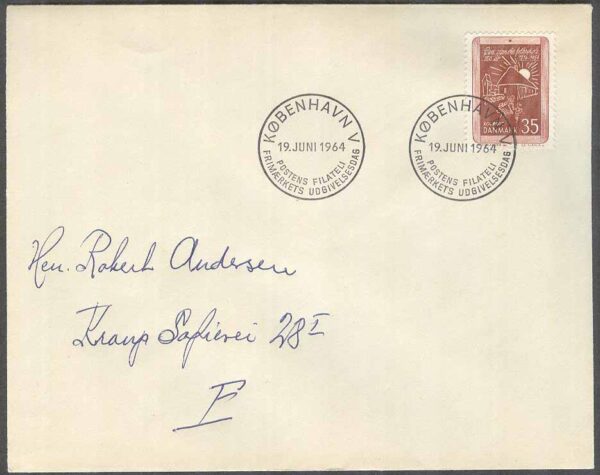 KØBENHAVN V
19. JUNI 1964
POSTENS FILATELI
FRIMÆRKETS UDGIVELSESDAG
KØBENHAVN V
19. JUNI 1964
POSTENS FILATELI
FRIMÆRKETS UDGIVELSESDAG
DANMARK 35
Hrr. Robert Andersen
Kraups 28 I
F